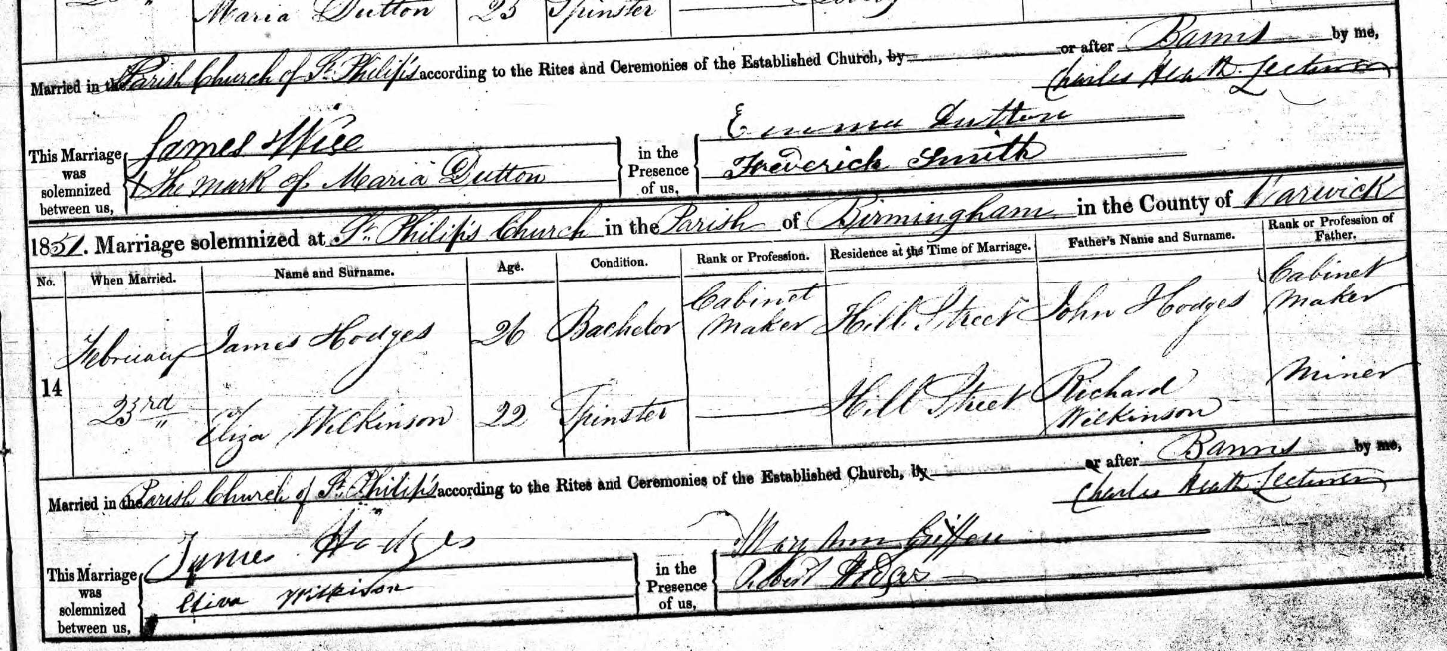 Maria Dutton 23 Spinster
Married in the Parish Church of St. Philip's according to the Rites and Ceremonies of the Established Church, by or after Banns by me,
Charles Heath. Lecturer
This Marriage was solemnized between us,
James Wice
The mark of Maria Dutton
in the Presence of us,
Emma Dutton
Frederick Smith
1851. Marriage solemnized at St. Philip's Church in the Parish of Birmingham in the County of Warwick
No. When Married. Name and Surname. Age. Condition. Rank or Profession. Residence at the Time of Marriage. Father's Name and Surname. Rank or Profession of Father.
14 February 23rd
James Hodges 26 Bachelor Cabinet Maker Hill Street John Hodges Cabinet Maker
Eliza Wilkinson 22 Spinster Hill Street Richard Wilkinson Miner
Married in the Parish Church of St. Philip's according to the Rites and Ceremonies of the Established Church, by or after Banns by me,
Charles Heath. Lecturer
This Marriage was solemnized between us,
James Hodges
Eliza Wilkison
in the Presence of us,
Mary Ann
Robert